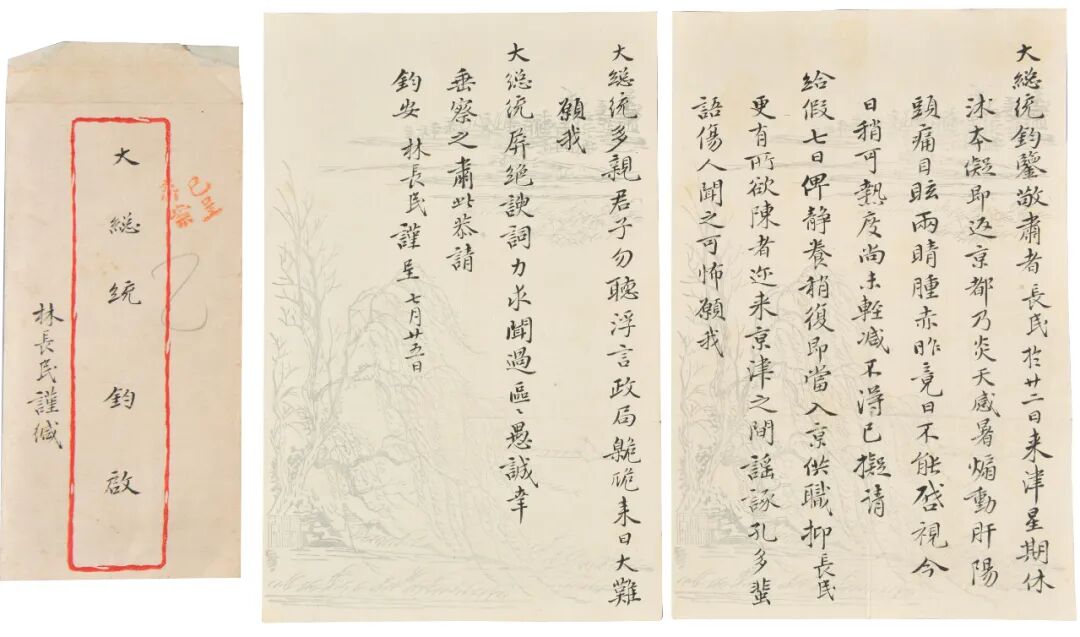 大總統鈞鑒敬肅者長民於廿二日来津星期休
沐本擬即返京都乃炎天感暑煽動肝陽
頭痛目眩兩睛腫赤昨竟日不能啓視今
日稍可熱度尚未輕減不得已擬請
給假七日俾靜養稍復即當入京供職抑長民
更有所欲陳者迩来京津之間謡諑孔多蜚
語傷人聞之可怖願我
大總統多親君子勿聽浮言政局臲卼来日大難
願我
大總統屏絶諛詞力求聞過區〻愚誠幸
垂察之肅此恭請
鈞安 林長民謹呈 七月廿五日
已呈
大總統鈞啟
林長民謹緘